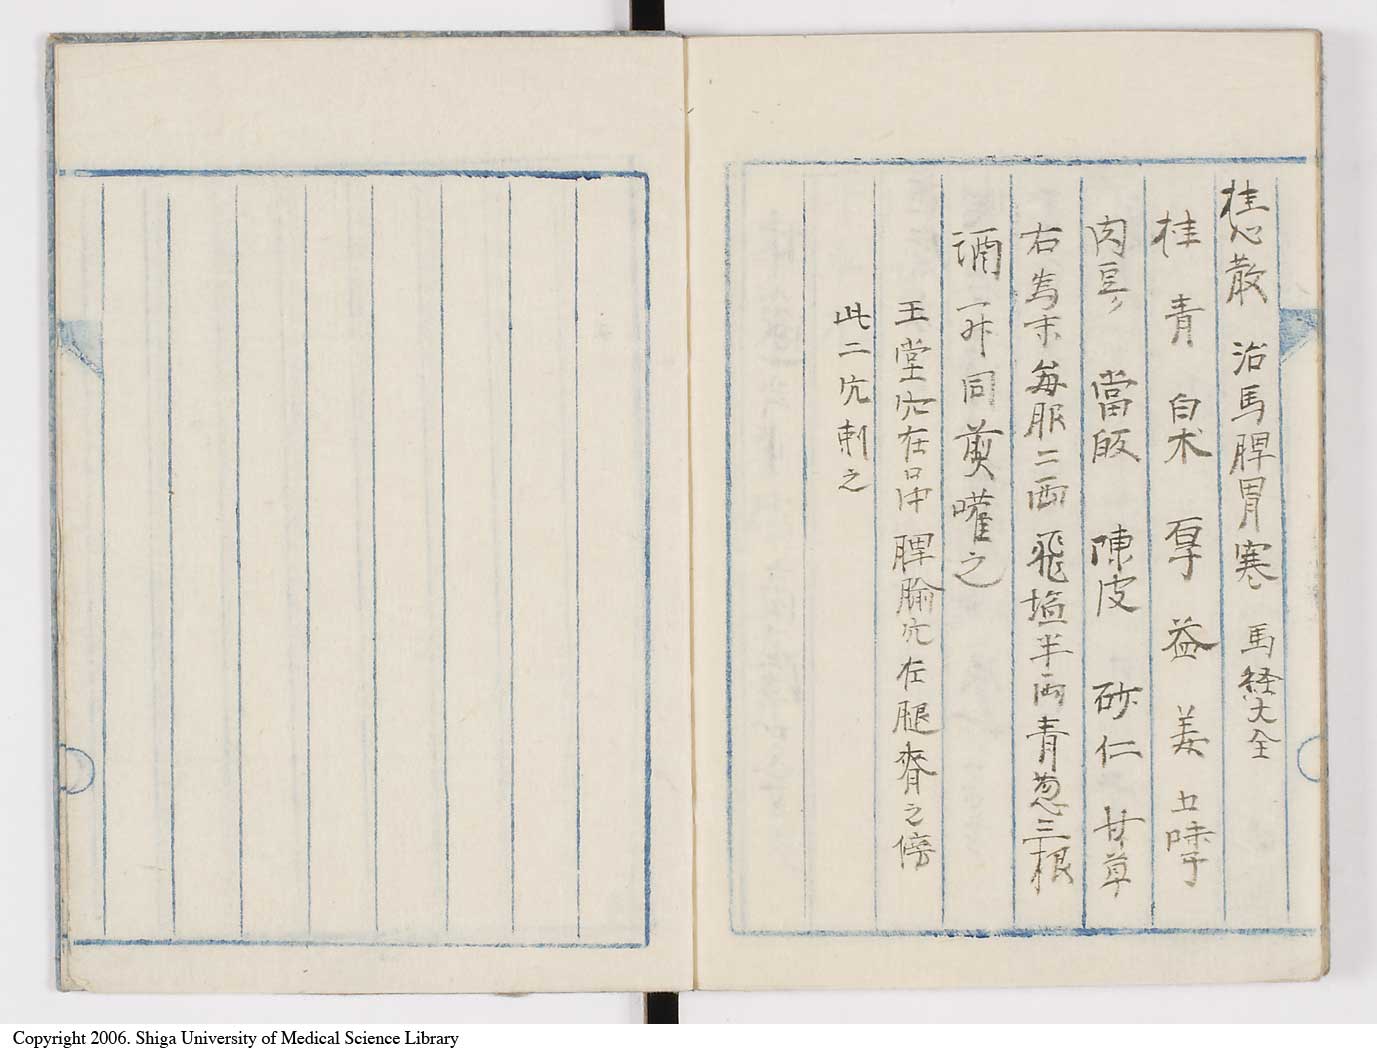 桂心散 治馬脾胃寒 馬経大全
桂 青 白朮 厚 益 姜 五味子
肉豆 當皈 陳皮 砂仁 甘草
右為末毎服二両 飛塩半両青葱三根
酒一升同煎嚾之
玉堂穴在口中 脾腧穴在腿脊之傍
此二穴刺之
Copyright 2006. Shiga University of Medical Science Library